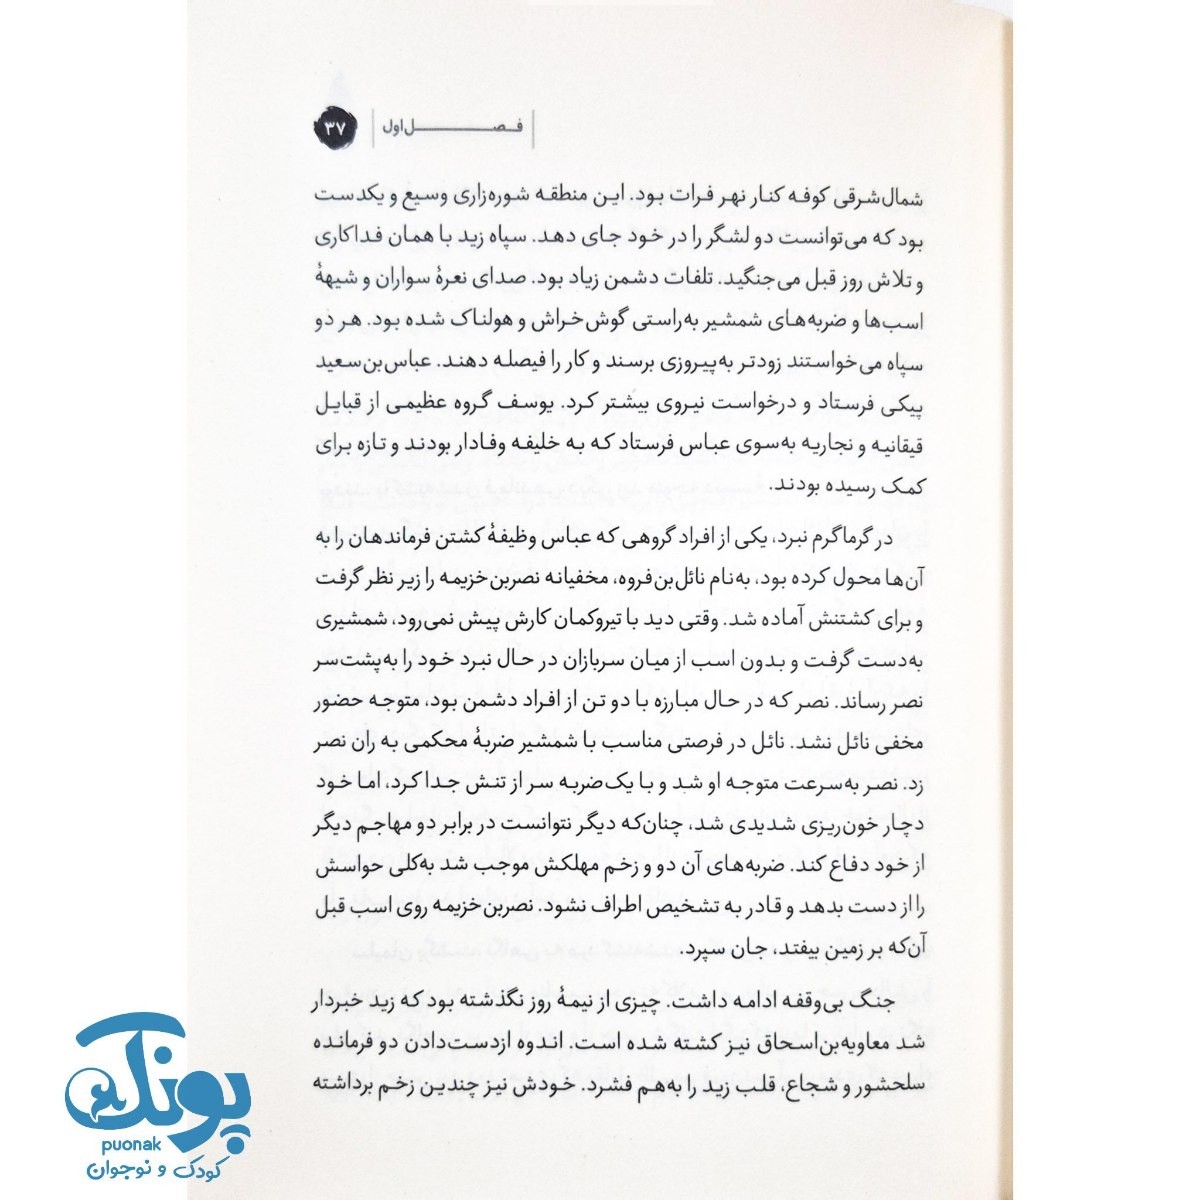 فصل اول
۳۷
شمال‌شرقی کوفه کنار نهر فرات بود. این منطقه شوره‌زاری وسیع و یکدست
بود که می‌توانست دو لشگر را در خود جای دهد. سپاه زید با همان فداکاری
و تلاش روز قبل می‌جنگید. تلفات دشمن زیاد بود. صدای نعرهٔ سواران و شیههٔ
اسب‌ها و ضربه‌های شمشیر به‌راستی گوش‌خراش و هولناک شده بود. هر دو
سپاه می‌خواستند زودتر به‌پیروزی برسند و کار را فیصله دهند. عباس‌بن‌سعید
پیکی فرستاد و درخواست نیروی بیشتر کرد. یوسف گروه عظیمی از قبایل
قیقانیه و نجاریه به‌سوی عباس فرستاد که به خلیفه وفادار بودند و تازه برای
کمک رسیده بودند.
در گرماگرم نبرد، یکی از افراد گروهی که عباس وظیفهٔ کشتن فرماندهان را به
آن‌ها محول کرده بود، به‌نام نائل‌بن‌فروه، مخفیانه نصربن‌خزیمه را زیر نظر گرفت
و برای کشتنش آماده شد. وقتی دید با تیروکمان کارش پیش نمی‌رود، شمشیری
به‌دست گرفت و بدون اسب از میان سربازان در حال نبرد خود را به‌پشت‌سر
نصر رساند. نصر که در حال مبارزه با دو تن از افراد دشمن بود، متوجه حضور
مخفی نائل نشد. نائل در فرصتی مناسب با شمشیر ضربهٔ محکمی به ران نصر
زد. نصر به‌سرعت متوجه او شد و با یک‌ضربه سر از تنش جدا کرد، اما خود
دچار خون‌ریزی شدیدی شد، چنان‌که دیگر نتوانست در برابر دو مهاجم دیگر
از خود دفاع کند. ضربه‌های آن دو و زخم مهلکش موجب شد به‌کلی حواسش
را از دست بدهد و قادر به تشخیص اطراف نشود. نصربن‌خزیمه روی اسب قبل
آن‌که بر زمین بیفتد، جان سپرد.
جنگ بی‌وقفه ادامه داشت. چیزی از نیمهٔ روز نگذشته بود که زید خبردار
شد معاویه‌بن‌اسحاق نیز کشته شده است. اندوه ازدست‌دادن دو فرمانده
سلحشور و شجاع، قلب زید را به‌هم فشرد. خودش نیز چندین زخم برداشته
پونک
puonak
کودک و نوجوان